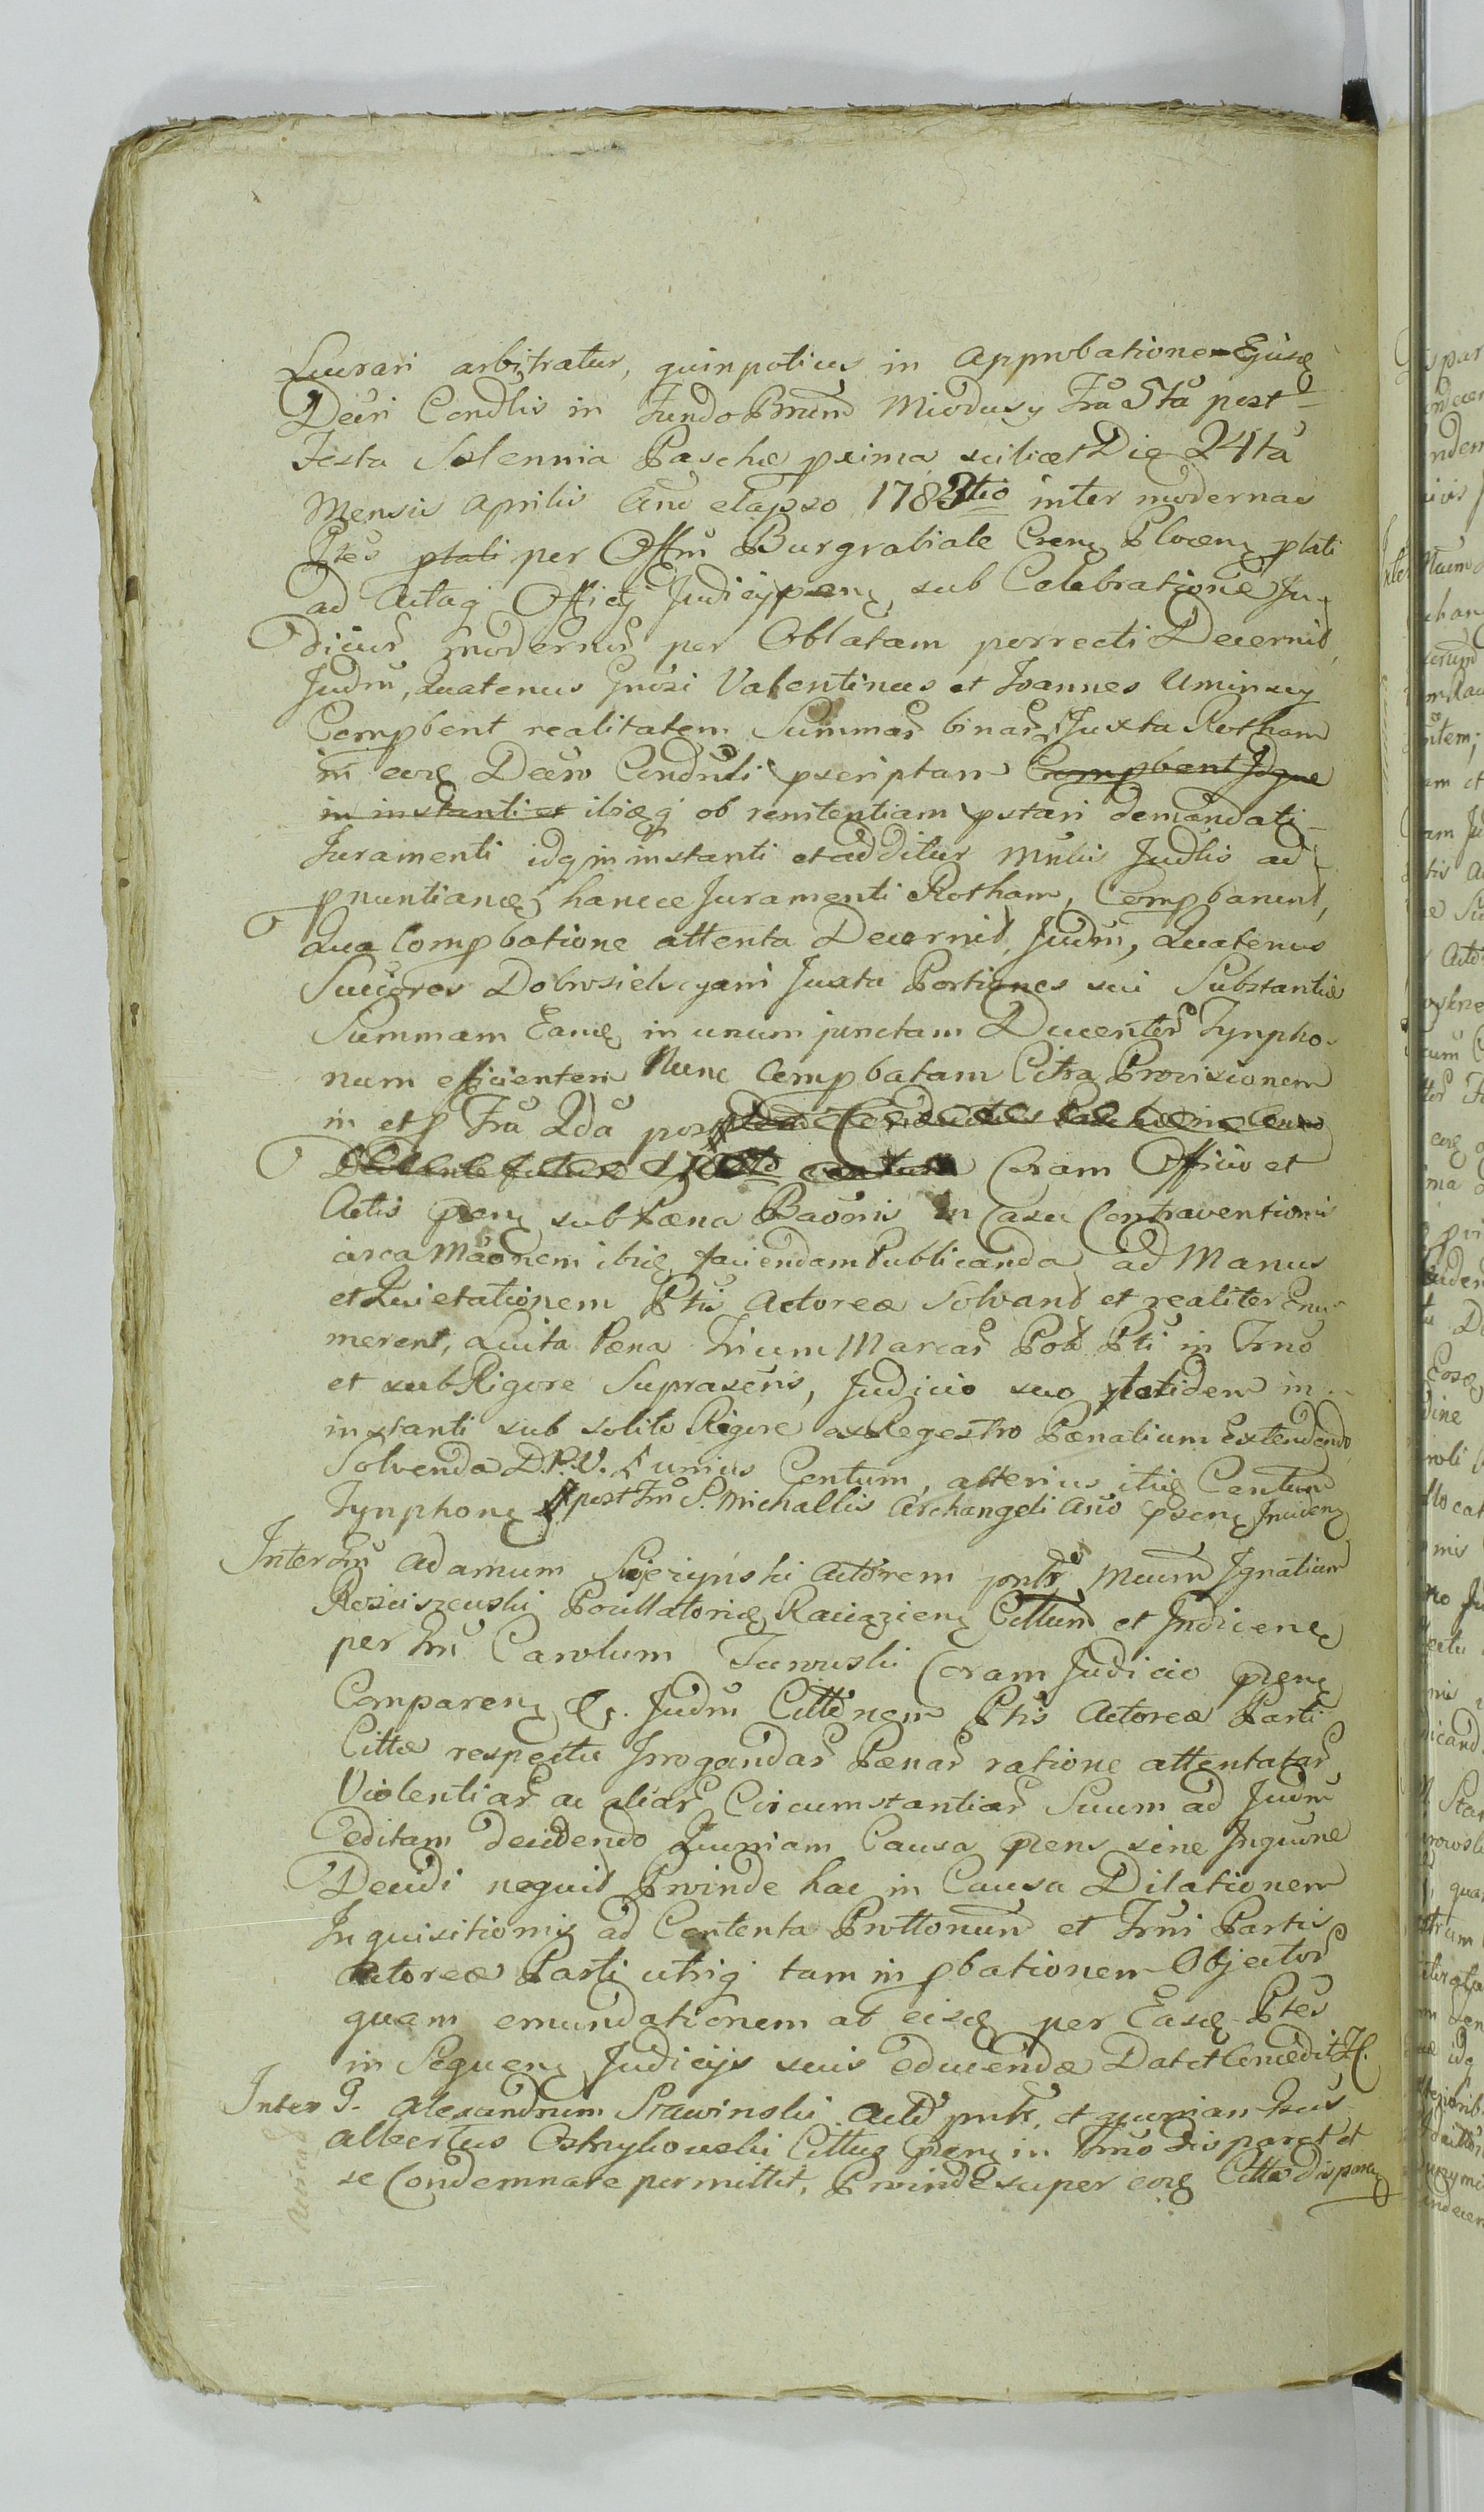 Lucrari arbitratur, quinpotius in Approbatione Ejusd
Decri Condlis in Fundo Bnum Miodusy Fra 5ta post
Festa Solennia Paschæ prima scilicet Die 24ta
Mensis Aprilis Anô elapso 1783tio inter modernas
Ptes per Offm Burgrabiale Cren Plocen plati
ad Actaq Officij Judicij pren sub Celebratione Ju-
diciur modernor per Oblatam porrecti Decernit
Judm, Quatenus Gnôsi Valentinus et Joannes Uminscy
Compbent realitatem Summar binar Juxta Rotham
in eod Decro Condnli pscriptam Compbent Idque
in instanti et ibideq ob renitentiam pstari demandati
Juramenti idq in instanti et additur Mnlis Judlis ad
pnuntiand hancce Juramenti Rotham, Compbarunt,
Qua Compbatione attenta Decernit Judm, Quatenus
Succôres Dobrosielscyani Juxta Portiones sui Substantiæ
Summam Eand in unum junctam Ducentor Tynpho-
num efficientem Nunc Compbatam Citra Provisionem
in et p Fra 2da post
Coram Officio et
Actis pren sub Pæna Baônis in Casu Contraventionis
circa Mâonem ibid faciendam Publicanda ad Manus
et Quietationem Ptis Actoreæ Solvant et realiter Enu-
merent, Luita Pæna Trium Marcar Pol Pti in Trnô
et sub Rigore Suprascris, Judicio suo totidem in
instanti sub solito Rigore ex Regestro Pænalium Extendendo
Solvenda D.P.V. unius Centum, alterius itid Centum
Tynphon post Fm S. Michallis Archangeli Anô psen Inciden
Inter Gm Adamum Sijerzyński Actôrem pntr Mcum Ignatium
Rosciszewski Pocillatorid Raciązien Cittum et Indicene
per Gm Carolum Turowski Coram Judicio pren
Comparen &. Judm Cittônem Ptis Actoreæ Parti
Cittæ respectu Irrogandar Pænar ratione attentatar
Violentiar ac aliar Circumstantiar Suum ad Judm
editam decidendo Quoniam Causa prens sine Inqusne
Decidi nequit Proinde hac in Causa Dilationem
Inquisitionis ad Contenta Prottonum et Trni Partis
Actoreæ Parti utriq tam in pbationem Objector
quam emundationem ab eisd per Easd Ptes
in Sequen Judicijs suis educendæ Dat et Concedit
Inter G. Alexandrum Srawinski Actô pntr. et quonian Gsus
Albertus Ostrykowski Cittus pren in Trnô Disparet et
se Condemnare permittit, Proinde super eod Citto disparen